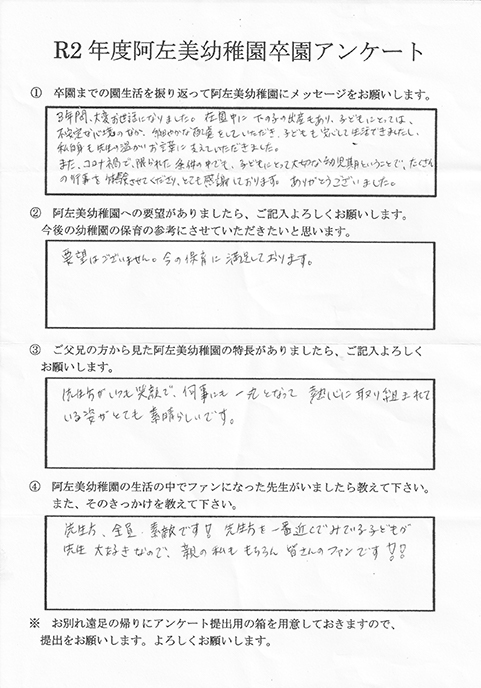 R2 年度阿左美幼稚園卒園アンケート
① 卒園までの園生活を振り返って阿左美幼稚園にメッセージをお願いします。
3年間、大変お世話になりました。在園中に下の子の出産もあり、子どもにとっては、
不安定な心境のなか、細やかな配慮をしていただき、子どもも安心して生活できましたし、
私自身も先生の温かいお言葉に支えていただきました。
また、コロナ禍で、限られた条件の中でも、子どもにとって大切な幼児期ということで、たくさん
の行事を体験させてくださり、とても感謝しております。ありがとうございました。
② 阿左美幼稚園への要望がありましたら、ご記入よろしくお願いします。
今後の幼稚園の保育の参考にさせていただきたいと思います。
要望はございません。今の保育に満足しております。
③ ご父兄の方から見た阿左美幼稚園の特長がありましたら、ご記入よろしく
お願いします。
先生方がいつも笑顔で、何事にも一丸となって熱心に取り組まれて
いる姿がとても素晴らしいです。
④ 阿左美幼稚園の生活の中でファンになった先生がいましたら教えて下さい。
また、そのきっかけを教えて下さい。
先生方、全員、素敵です!! 先生方を一番近くでみている子どもが
先生大好きなので、親の私ももちろん皆さんのファンです!!
※ お別れ遠足の帰りにアンケート提出用の箱を用意しておきますので、
提出をお願いします。よろしくお願いします。